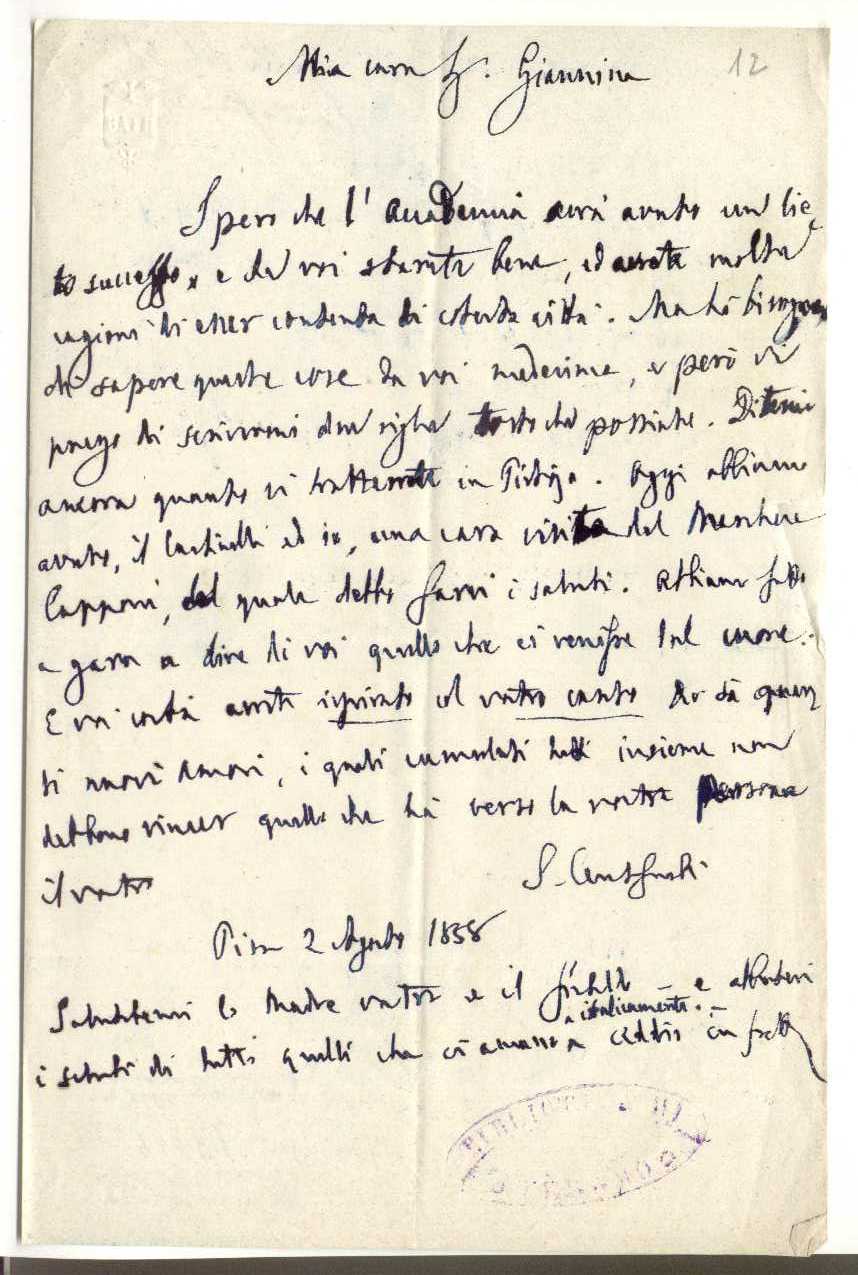 Mia cara S. Giannina
12
Spero che l'Accademia avrà avuto un lie-
to successo, e che voi starete bene, ed avrete molte
cagioni di esser contenta di cotesta città. Ma hò bisogno
di sapere queste cose da voi medesima, e però vi
prego di scrivermi due righe tosto che possiate. Ditemi
ancora quanto vi tratterrete in Pistoja. Oggi abbiamo
avuto, il Centinelli ed io, una cara visita del Marchese
Capponi, del quale debbo farvi i saluti. Abbiamo fatto
a gara a dire di voi quello che ci venisse dal cuore.
E voi costà avrete ispirato col vostro canto chi sà quan-
ti nuovi amori, i quali cumulati tutti insieme non
debbono vincer quello che hà verso la vostra persona
il vostro
S. Centofanti
Pisa 2 Agosto 1858
Salutatemi la Madre vostra e il fratello – e abbiatevi
italicamente. –
i saluti di tutti quelli che vi amano Addio in fretta
BIBLIOTECA